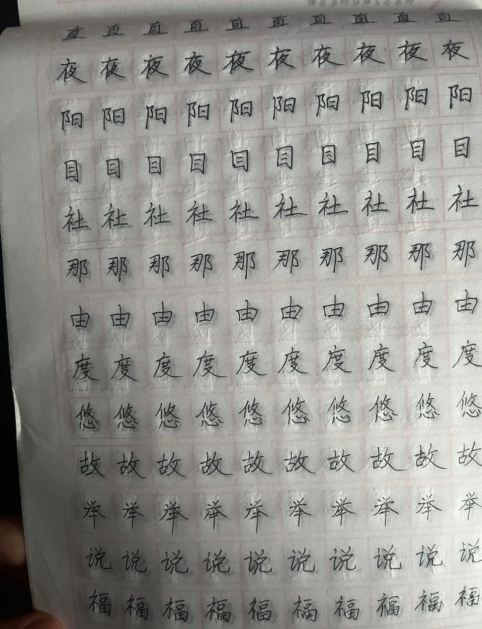 直 直 直 直 直 直 直 直 直 直
夜 夜 夜 夜 夜 夜 夜 夜 夜 夜
阳 阳 阳 阳 阳 阳 阳 阳 阳 阳
目 目 目 目 目 目 目 目 目 目
社 社 社 社 社 社 社 社 社 社
那 那 那 那 那 那 那 那 那 那
由 由 由 由 由 由 由 由 由 由
度 度 度 度 度 度 度 度 度 度
悠 悠 悠 悠 悠 悠 悠 悠 悠 悠
故 故 故 故 故 故 故 故 故 故
举 举 举 举 举 举 举 举 举 举
说 说 说 说 说 说 说 说 说 说
福 福 福 福 福 福 福 福 福 福